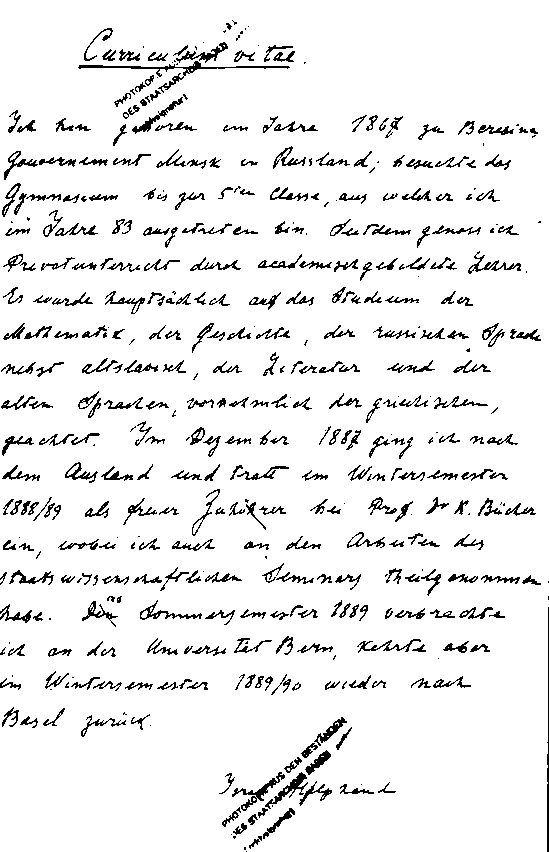 Curriculum vitae.
PHOTOKOPIE AUS
DES STAATSARCHIVS BASEL
Ich bin geboren im Jahre 1867 zu Beresina
Gouvernement Minsk in Russland; besuchte das
Gymnasium bis zur 5ten Classe, aus welcher ich
im Jahre 83 ausgetreten bin. Seitdem genoss ich
Privatunterricht durch academischgebildete Lehrer.
Es wurde hauptsächlich auf das Studium der
Mathematik, der Geschichte, der russischen Sprache
nebst altslavisch, der Literatur und der
alten Sprachen, vornehmlich der griechischen,
geachtet. Im Dezember 1887 ging ich nach
dem Ausland und tratt im Wintersemester
1888/89 als freier Zuhörer bei Prof. Dr K. Bücher
ein, wobei ich auch an den Arbeiten des
staatswissenschaftlichen Seminars theilgenommen
habe. Das Sommersemester 1889 verbrachte
ich an der Universität Bern, kehrte aber
im Wintersemester 1889/90 wieder nach
Basel zurück.
Helphand
PHOTOKOPIE AUS DEN BESTÄNDEN
DES STAATSARCHIVS BASEL